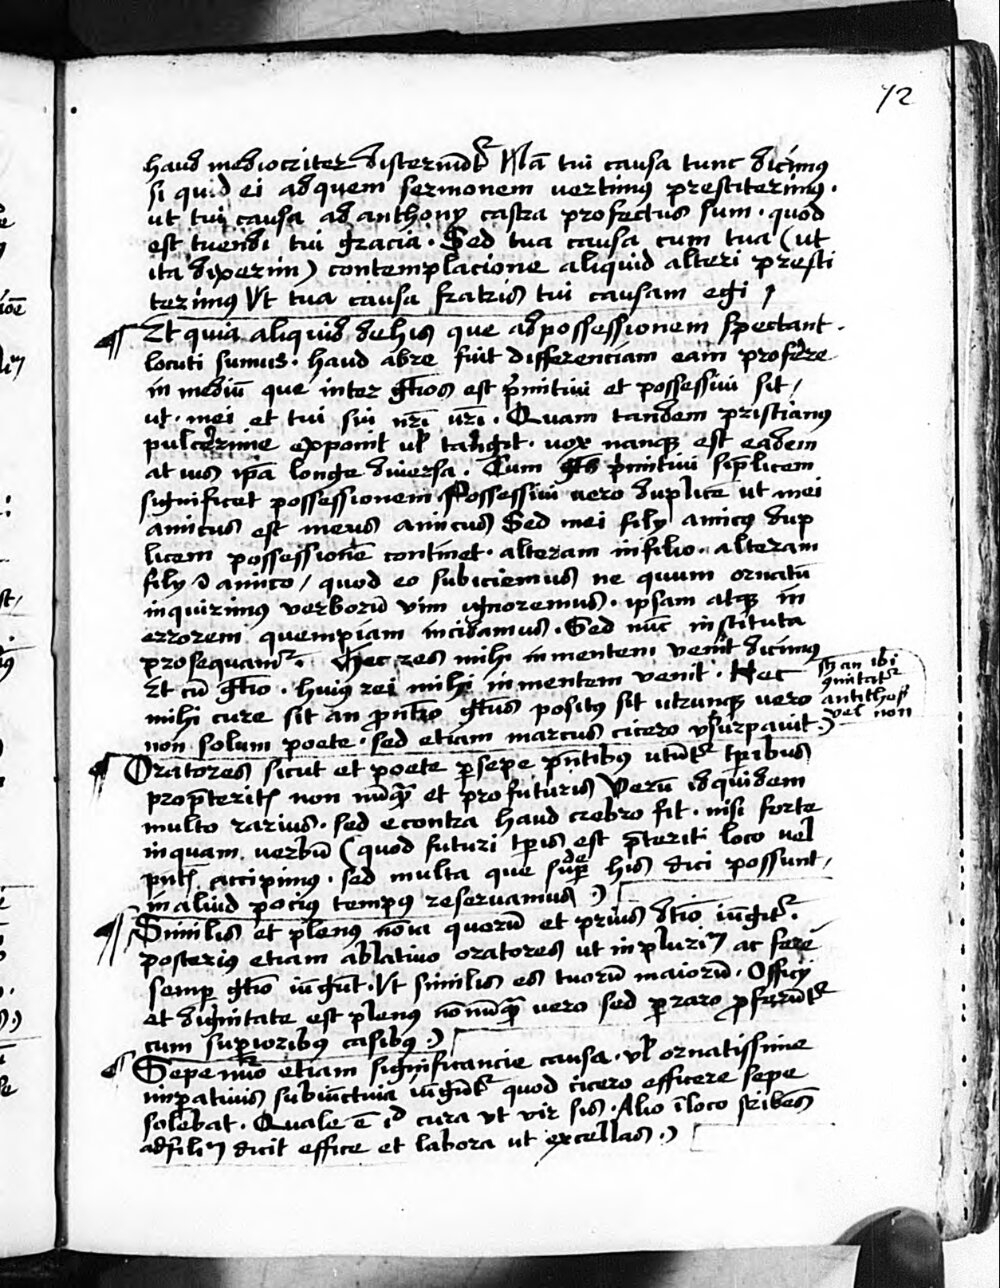 72
haud mediocriter disterminãt² Nã tui causa tunc dicimus
si quid ei ad quem sermonem vertimus prestiterimus.
ut tui causa ad anthony castra profectus sum. quod
est tuendi tui gracia. Sed tua causa cum tua (ut
ita dixerim) contemplacione aliquid alteri presti
terimus Vt tua causa fratris tui causam egi
Et quia aliquid de his que ad possessionem spectant.
locuti sumus. haud abre fuit differenciam eam proferre
in mediũ que inter gťios est p̃mitiui et possessiui sit/
ut. mei et tui sui nr̃i ur̃i. Quam tandem priscianus
pulcerrime exponit ul tangit. vox nanq3 est eadem
at uis ip̃a longe diuersa. Cum gťs p̃mitiui simplicem
significet possessionem Possessiui uero duplicẽ ut mei
amicus est meus amicus Sed mei fily amicus dup
licem possessionẽ continet. alteram in filio. alteram
fily ĩ amico/ quod eo subiciemus ne quum ornatũ
inquirimus verborũ vim ignoremus. ipsam atq3 in
errorem quempiam incidamus. Sed nũc instituta
prosequamr². hec res mihi in mentem venit dicimus
Et cũ gťio. huius rei mihi in mentem venit. Nec
mihi cure sit an p̃ntio gťus positus sit utrunq3 uero
sz an ibi
antithos̃
vel non
non solum poete. sed etiam marcus cicero vsurpauit.
Oratores sicut et poete persepe p̃ntibus utũt² tp̃ribus
pro p̃teritis non nũq̃ et pro futuris Verũ id quidem
multo rarius. sed econtra haud crebro fit. nisi forte
inquam verbũ (quod futuri tp̃is est p̃teriti loco vel
p̃ntis accipimus. sed multa que super de his dici possunt,
in aliud pocius tempus reseruamus
Similis et plenus nõia quorũ et prius dťio iũgit².
posterius etiam ablatiuo oratores ut in plurim ac fere
semp gťio iũgũt. Vt similis es tuorũ maiorũ. Officy
et dignitate est plenus nõnũq̃ vero sed perraro p̃ferũt²
cum superioribus casibus.
Sepenũo etiam significancie causa. vl ornatissime
imperatiuis subiũctiua iũgũt² quod cicero efficere sepe
solebat. Quale ẽ id cura vt vir sis. Alio ĩ loco scribẽs
ad filium dicit effice et labora ut excellas.